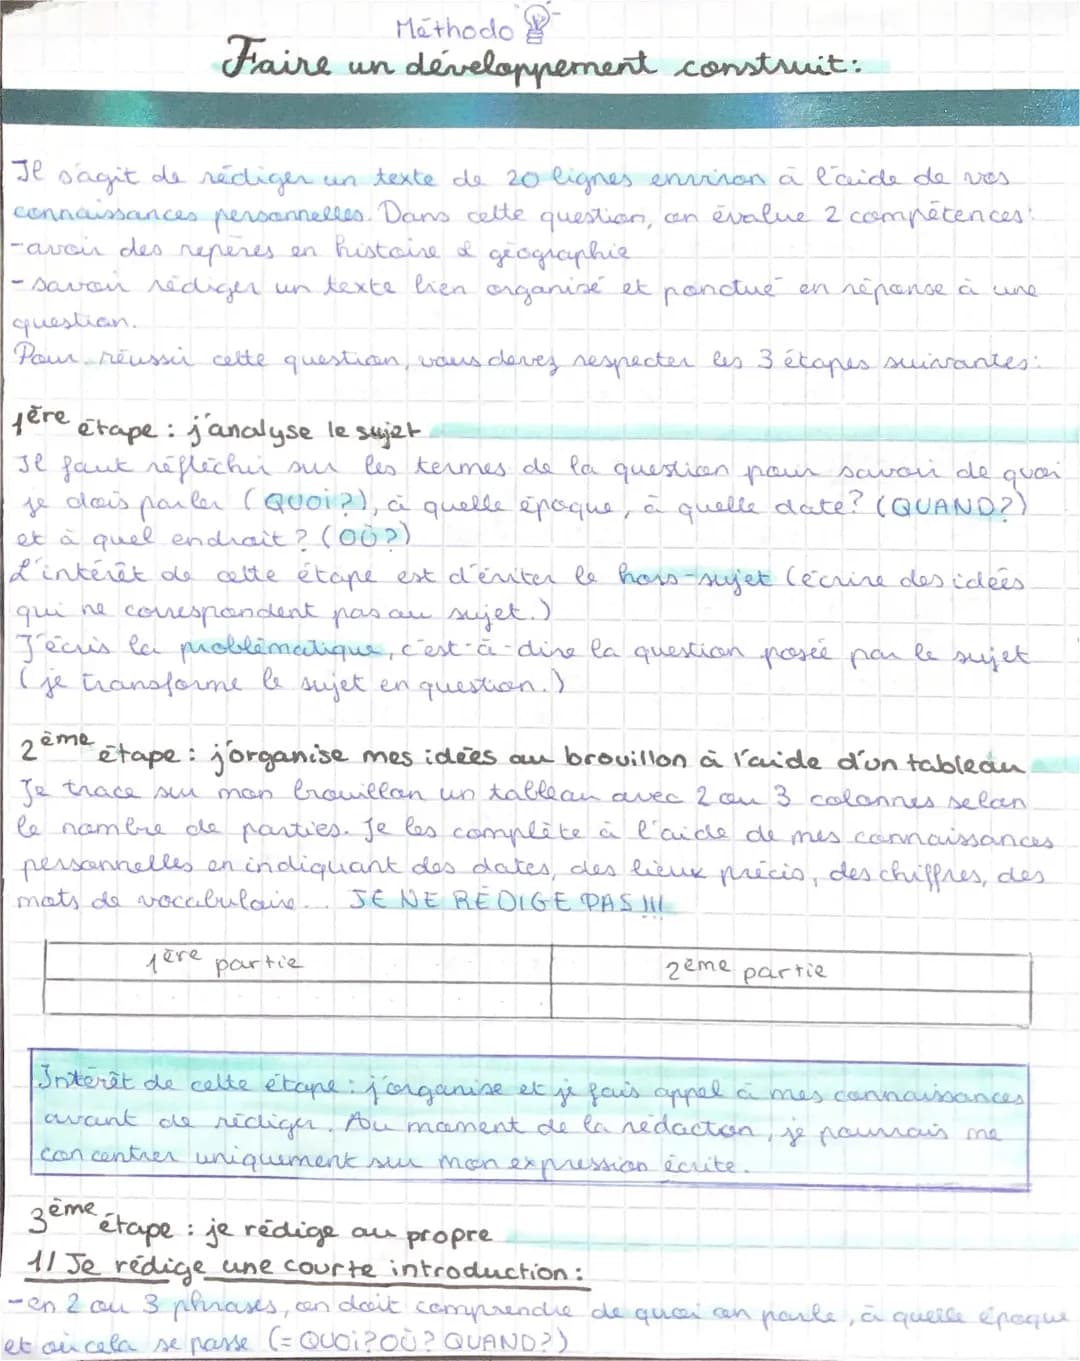 Méthodo
Faire un développement construit:
Il s'agit de rédiger un texte de 20 lignes environ à l'aide de vos
connaissances personnelles. Dans cette question, on évalue 2 compétences:
-avoir des repères en histoire & géographie
- savoir rédiger un texte bien organisé et ponctué en réponse à une
question.
Pour réussir cette question, vous devez respecter les 3 étapes suivantes:
1ère étape : j'analyse le sujet
Il faut réfléchir sur les termes de la question pour savoir de quoi
je dois parler (QUOI?), à quelle époque, à quelle date? (QUAND?)
et à quel endroit? (OÙ?)
L'intérêt de cette étape est d'éviter le hors-sujet (écrire des idées
qui ne correspondent pas au sujet.)
J'écris la problématique, c'est-à-dire la question posée par le sujet
(je transforme le sujet en question.)
2ème étape : j'organise mes idées au brouillon à l'aide d'un tableau
Je trace sur mon brouillon un tableau avec 2 ou 3 colonnes selon
le nombre de parties. Je les complète à l'aide de mes connaissances
personnelles en indiquant des dates, des lieux précis, des chiffres, des
mots de vocabulaire... JE NE RÉDIGE PAS !!!
1ère partie 2ème partie
Intérêt de cette étape : j'organise et je fais appel à mes connaissances
avant de rédiger. Au moment de la rédacton, je pourrais me
concentrer uniquement sur mon expression écrite.
3ème étape : je rédige au propre
1/ Je rédige une courte introduction :
-en 2 ou 3 phrases, on doit comprendre de quoi on parle, à quelle époque
et où cela se passe (= QUOI? OÙ? QUAND?)